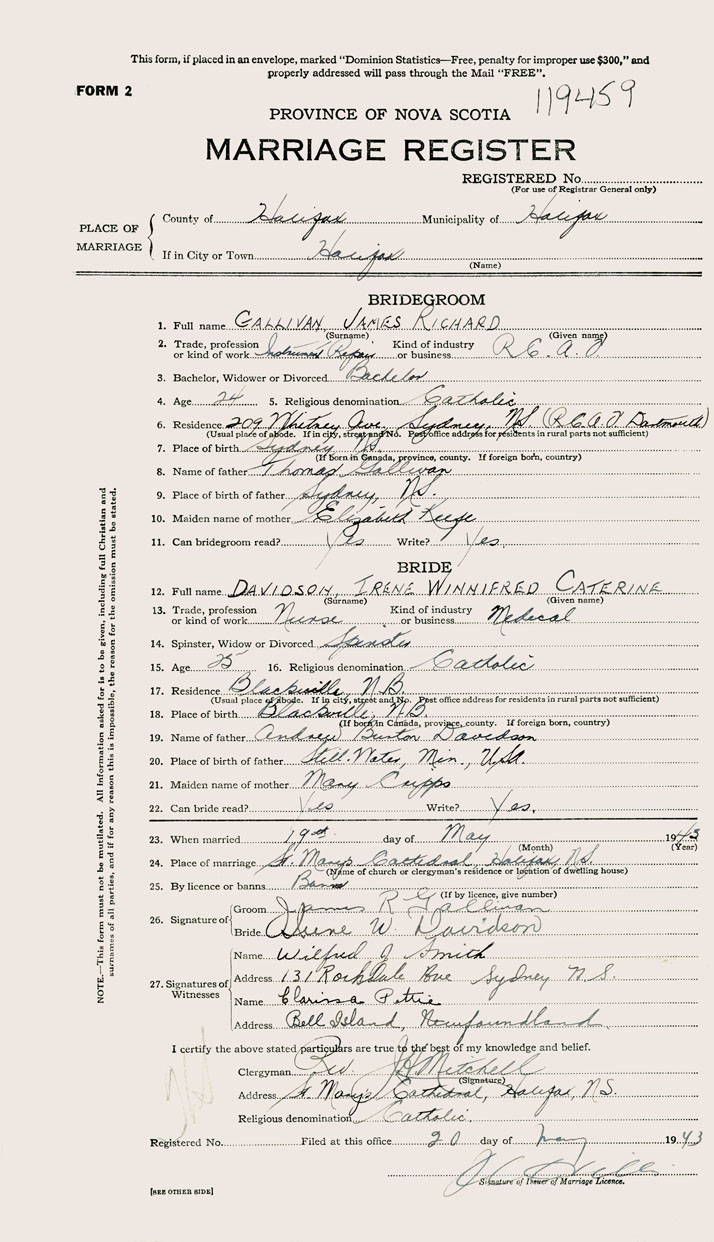 This form, if placed in an envelope, marked "Dominion Statistics—Free, penalty for improper use $300," and
properly addressed will pass through the Mail "FREE".
FORM 2
119459
PROVINCE OF NOVA SCOTIA
MARRIAGE REGISTER
REGISTERED No.
(For use of Registrar General only)
PLACE OF MARRIAGE
County of Halifax Municipality of Halifax
If in City or Town Halifax
(Name)
BRIDEGROOM
1. Full name GALLIVAN, JAMES RICHARD
(Surname) (Given name)
2. Trade, profession or kind of work Instrument Repair Kind of industry or business R.C.A.F
3. Bachelor, Widower or Divorced Bachelor
4. Age 24 5. Religious denomination Catholic
6. Residence 209 Whitney Ave, Sydney, NS (R.C.A.F Dartmouth)
(Usual place of abode. If in city, street and No. Post office address for residents in rural parts not sufficient)
7. Place of birth Sydney NS.
(If born in Canada, province, county. If foreign born, country)
8. Name of father Thomas Gallivan
9. Place of birth of father Sydney, NS.
10. Maiden name of mother Elizabeth Keefe
11. Can bridegroom read? Yes Write? Yes.
BRIDE
12. Full name DAVIDSON, IRENE WINNIFRED CATERINE
(Surname) (Given name)
13. Trade, profession or kind of work Nurse Kind of industry or business Medical
14. Spinster, Widow or Divorced Spinster
15. Age 25 16. Religious denomination Catholic
17. Residence Blackville, N.B.
(Usual place of abode. If in city, street and No. Post office address for residents in rural parts not sufficient)
18. Place of birth Blackville, N.B.
(If born in Canada, province, county. If foreign born, country)
19. Name of father Andrew Burton Davidson
20. Place of birth of father Still Water, Min., USA.
21. Maiden name of mother Mary Cripps
22. Can bride read? Yes Write? Yes.
23. When married 19th day of May 1943
(Month) (Year)
24. Place of marriage St. Mary's Cathedral, Halifax, NS.
(Name of church or clergyman's residence or location of dwelling house)
25. By licence or banns Banns
(If by licence, give number)
26. Signature of
Groom James R Gallivan
Bride Irene W. Davidson
27. Signatures of Witnesses
Name Wilfred J Smith
Address 131 Rockdale Ave Sydney N.S.
Name Clarissa Pettie
Address Bell Island, Newfoundland.
I certify the above stated particulars are true to the best of my knowledge and belief.
Clergyman Rev. Mitchell
(Signature)
Address St. Mary's Cathedral, Halifax, NS.
Religious denomination Catholic.
Registered No. Filed at this office 20 day of May 1943
Signature of Issuer of Marriage Licence.
[SEE OTHER SIDE]
NOTE.—This form must not be mutilated. All information asked for is to be given, including full Christian and
surnames of all parties, and if for any reason this is impossible, the reason for the omission must be stated.